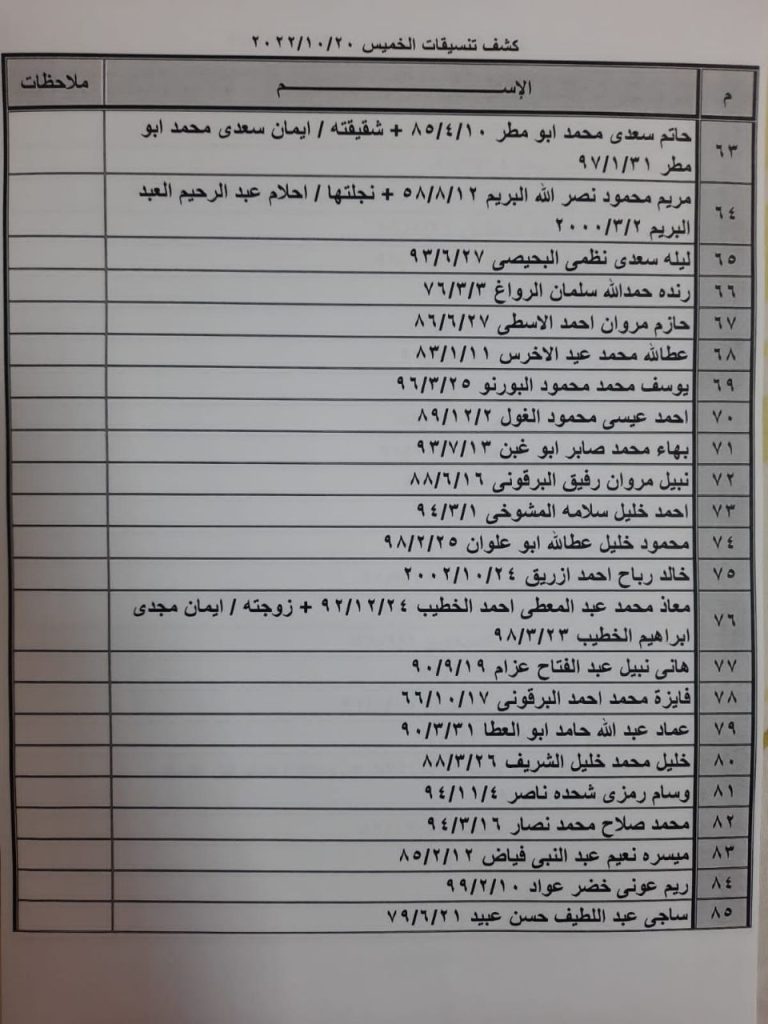 كشف تنسيقات الخميس ٢٠٢٢/١٠/٢٠
م الإســـــــم ملاحظات
٦٣ حاتم سعدى محمد ابو مطر ٨٥/٤/١٠ + شقيقته / ايمان سعدى محمد ابو
مطر ٩٧/١/٣١
٦٤ مريم محمود نصر الله البريم ٥٨/٨/١٢ + نجلتها / احلام عبد الرحيم العبد
البريم ٢٠٠٠/٣/٢
٦٥ ليله سعدى نظمى البحيصى ٩٣/٦/٢٧
٦٦ رنده حمدالله سلمان الرواغ ٧٦/٣/٣
٦٧ حازم مروان احمد الاسطى ٨٦/٦/٢٧
٦٨ عطالله محمد عيد الاخرس ٨٣/١/١١
٦٩ يوسف محمد محمود البورنو ٩٦/٣/٢٥
٧٠ احمد عيسى محمود الغول ٨٩/١٢/٢
٧١ بهاء محمد صابر ابو غبن ٩٣/٧/١٣
٧٢ نبيل مروان رفيق البرقونى ٨٨/٦/١٦
٧٣ احمد خليل سلامه المشوخى ٩٤/٣/١
٧٤ محمود خليل عطالله ابو علوان ٩٨/٢/٢٥
٧٥ خالد رباح احمد ازريق ٢٠٠٢/١٠/٢٤
٧٦ معاذ محمد عبد المعطى احمد الخطيب ٩٢/١٢/٢٤ + زوجته / ايمان مجدى
ابراهيم الخطيب ٩٨/٣/٢٣
٧٧ هانى نبيل عبد الفتاح عزام ٩٠/٩/١٩
٧٨ فايزة محمد احمد البرقونى ٦٦/١٠/١٧
٧٩ عماد عبد الله حامد ابو العطا ٩٠/٣/٣١
٨٠ خليل محمد خليل الشريف ٨٨/٣/٢٦
٨١ وسام رمزى شحده ناصر ٩٤/١١/٤
٨٢ محمد صلاح محمد نصار ٩٤/٣/١٦
٨٣ ميسره نعيم عبد النبى فياض ٨٥/٢/١٢
٨٤ ريم عونى خضر عواد ٩٩/٢/١٠
٨٥ ساجى عبد اللطيف حسن عبيد ٧٩/٦/٢١